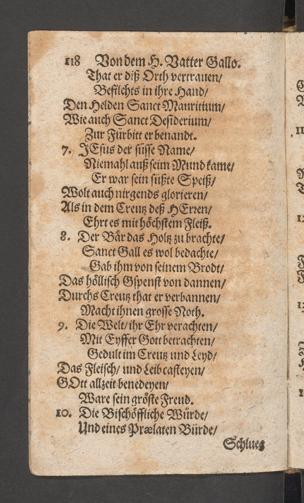 118 Von dem H. Vatter Gallo.
That er diß Orth vertrauen/
Befilchts in ihre Hand/
Den Helden Sanct Mauritium/
Wie auch Sanct Desiderium/
Zur Fürbitt er benandt.
7. JEsus der süsse Name/
Niemahl auß seim Mund kame/
Er war sein süßte Speiß/
Wolt auch nirgends glorieren/
Als in dem Creutz deß HErren/
Ehrt es mit höchstem Fleiß.
8. Der Bär das Holtz zu brachte/
Sanct Gall es wol bedachte/
Gab ihm von seinem Brodt/
Das höllisch Gspenst von dannen/
Durchs Creutz that er verbannen/
Macht ihnen grosse Noth.
9. Die Welt/ ihr Ehr verachten/
Mit Eyffer Gott betrachten/
Gedult im Creutz und Leyd/
Das Fleisch/ und Leib casteyen/
GOtt allzeit benedeyen/
Ware sein gröste Freud.
10. Die Bischöffliche Würde/
Und eines Prælaten Bürde/